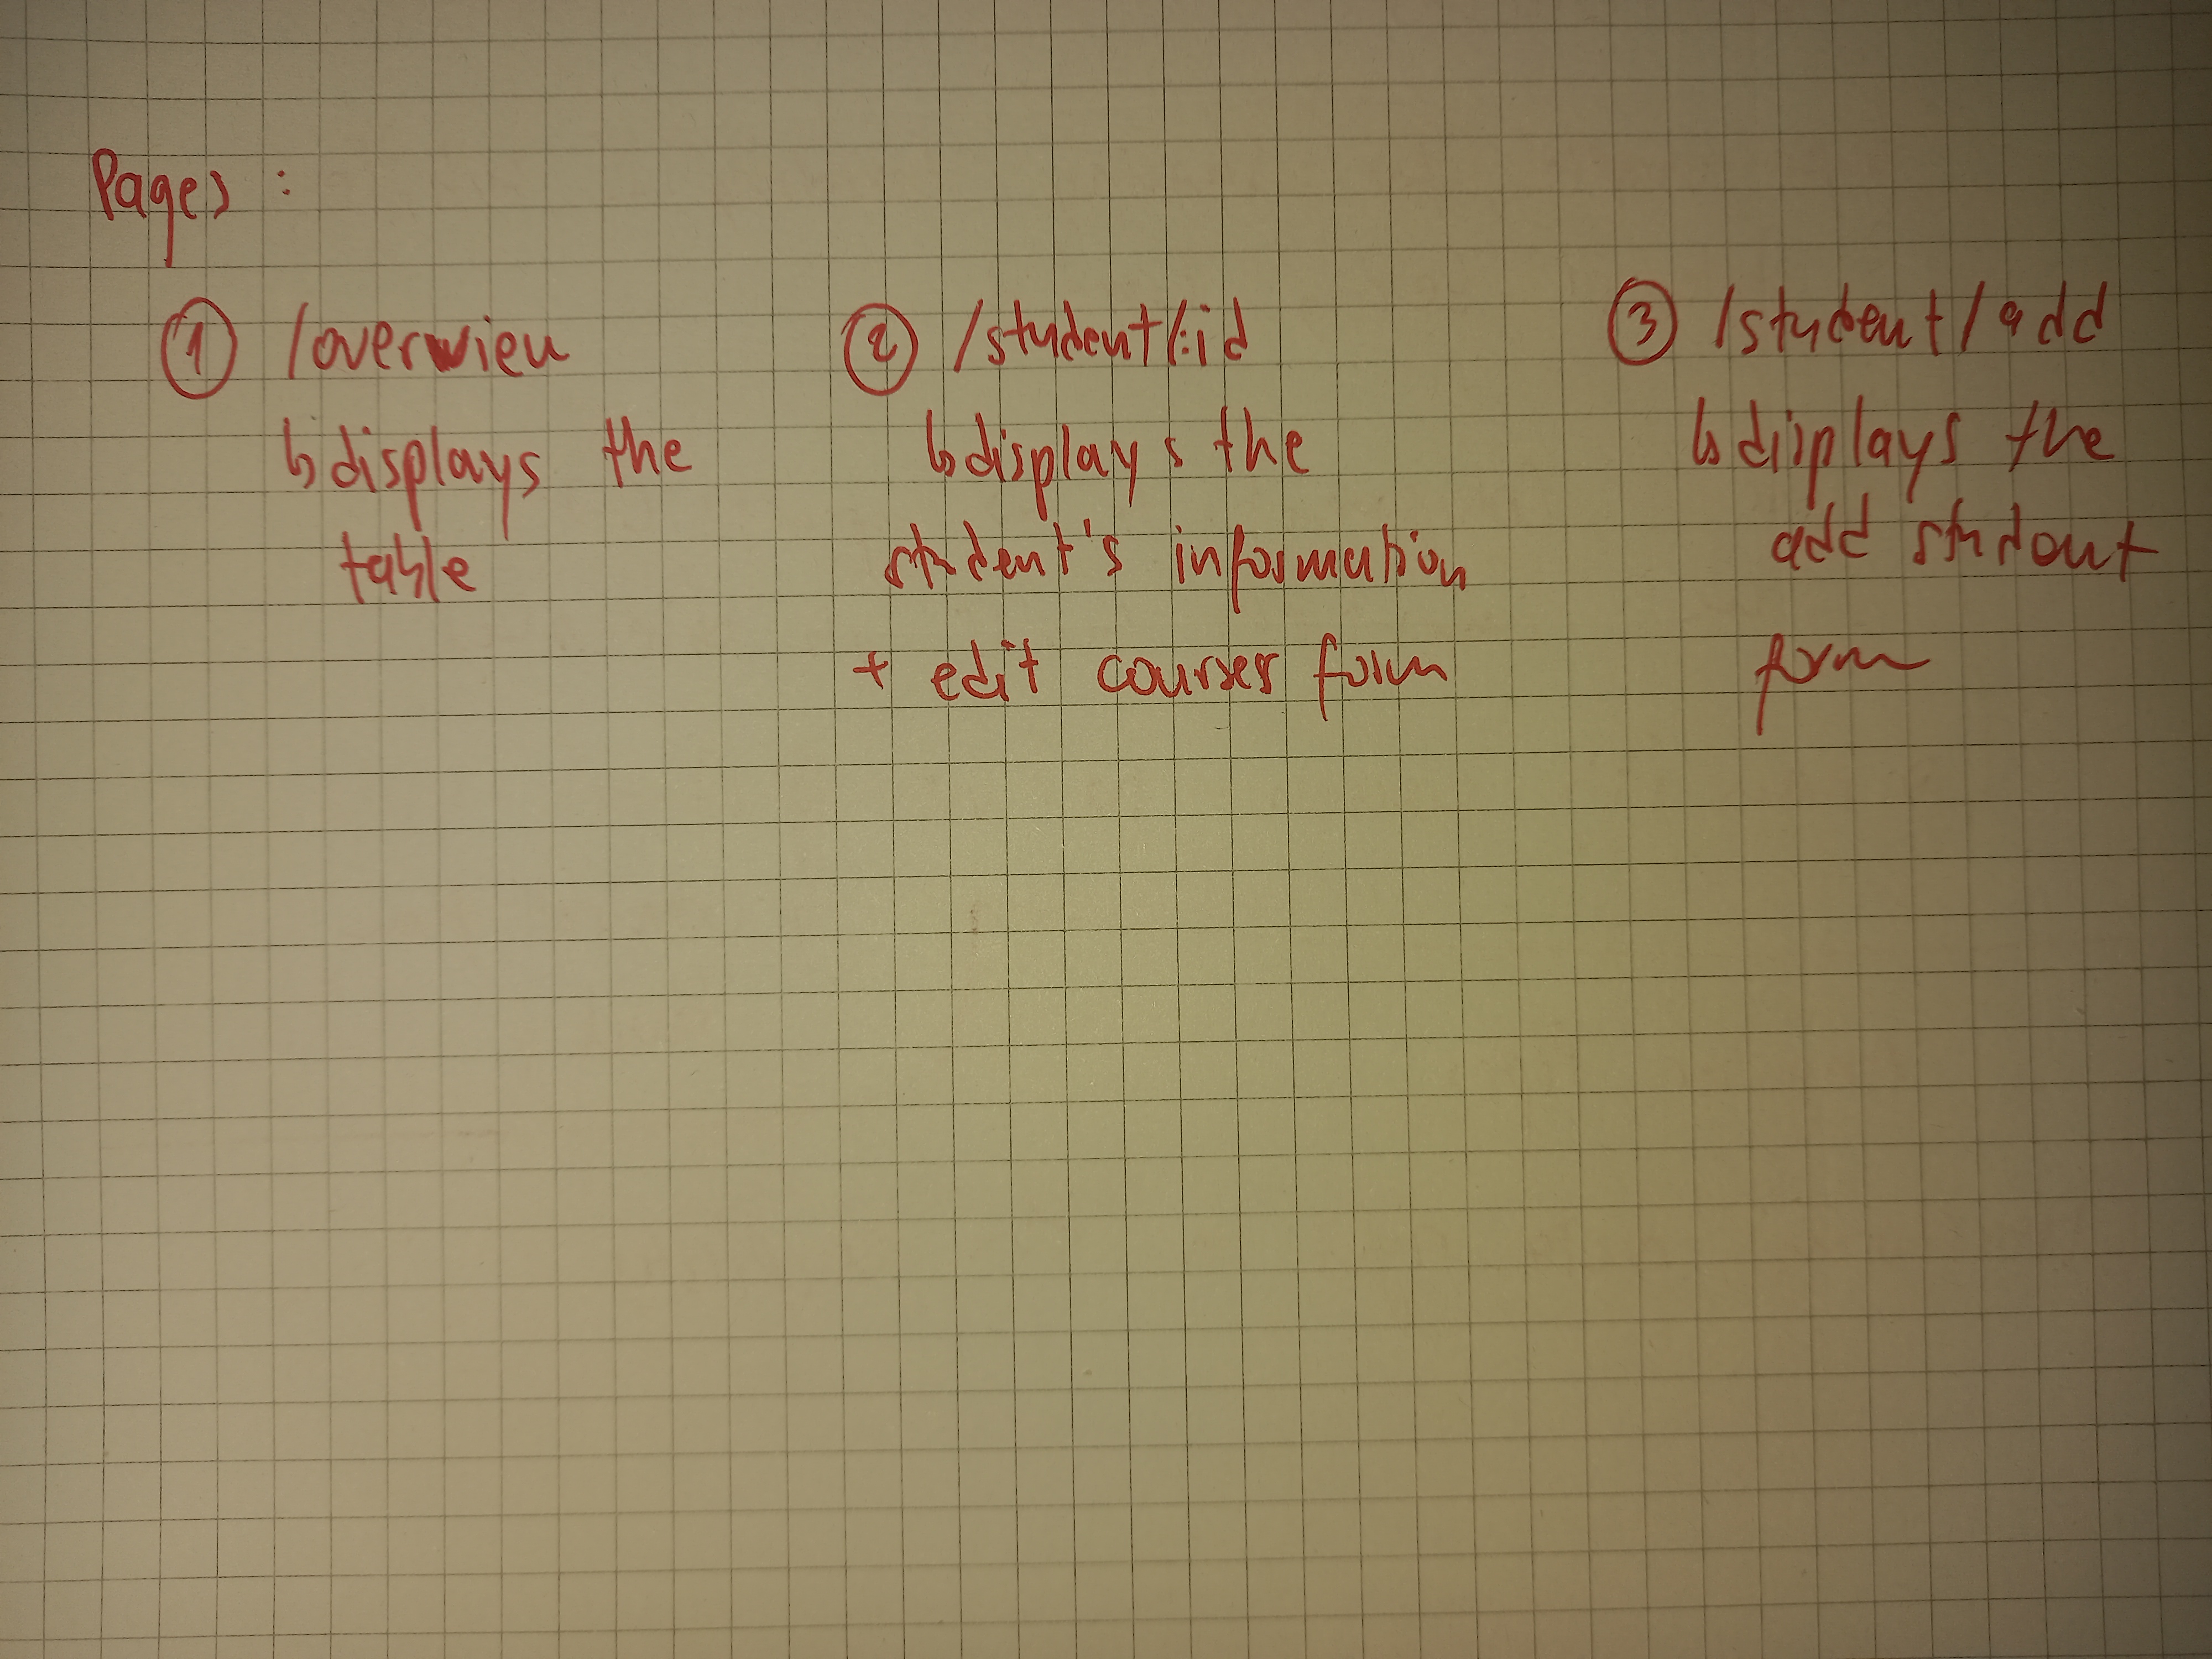 Pages :
① /overview
↳ displays the
table
② /student/:id
↳ displays the
student's information
+ edit courses form
③ /student/add
↳ displays the
add student
form